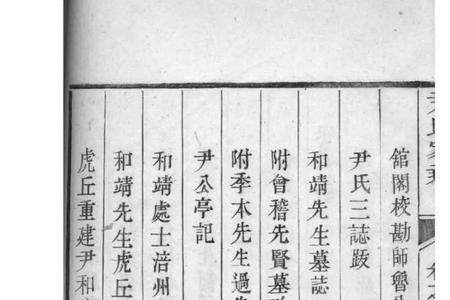 館閣校勘師魯
尹氏三誌跋
和靖先生墓誌
附會稽先賢墓
附季本先生過
尹公亭記
和靖處士涪州
和靖先生虎丘
虎丘重建尹和